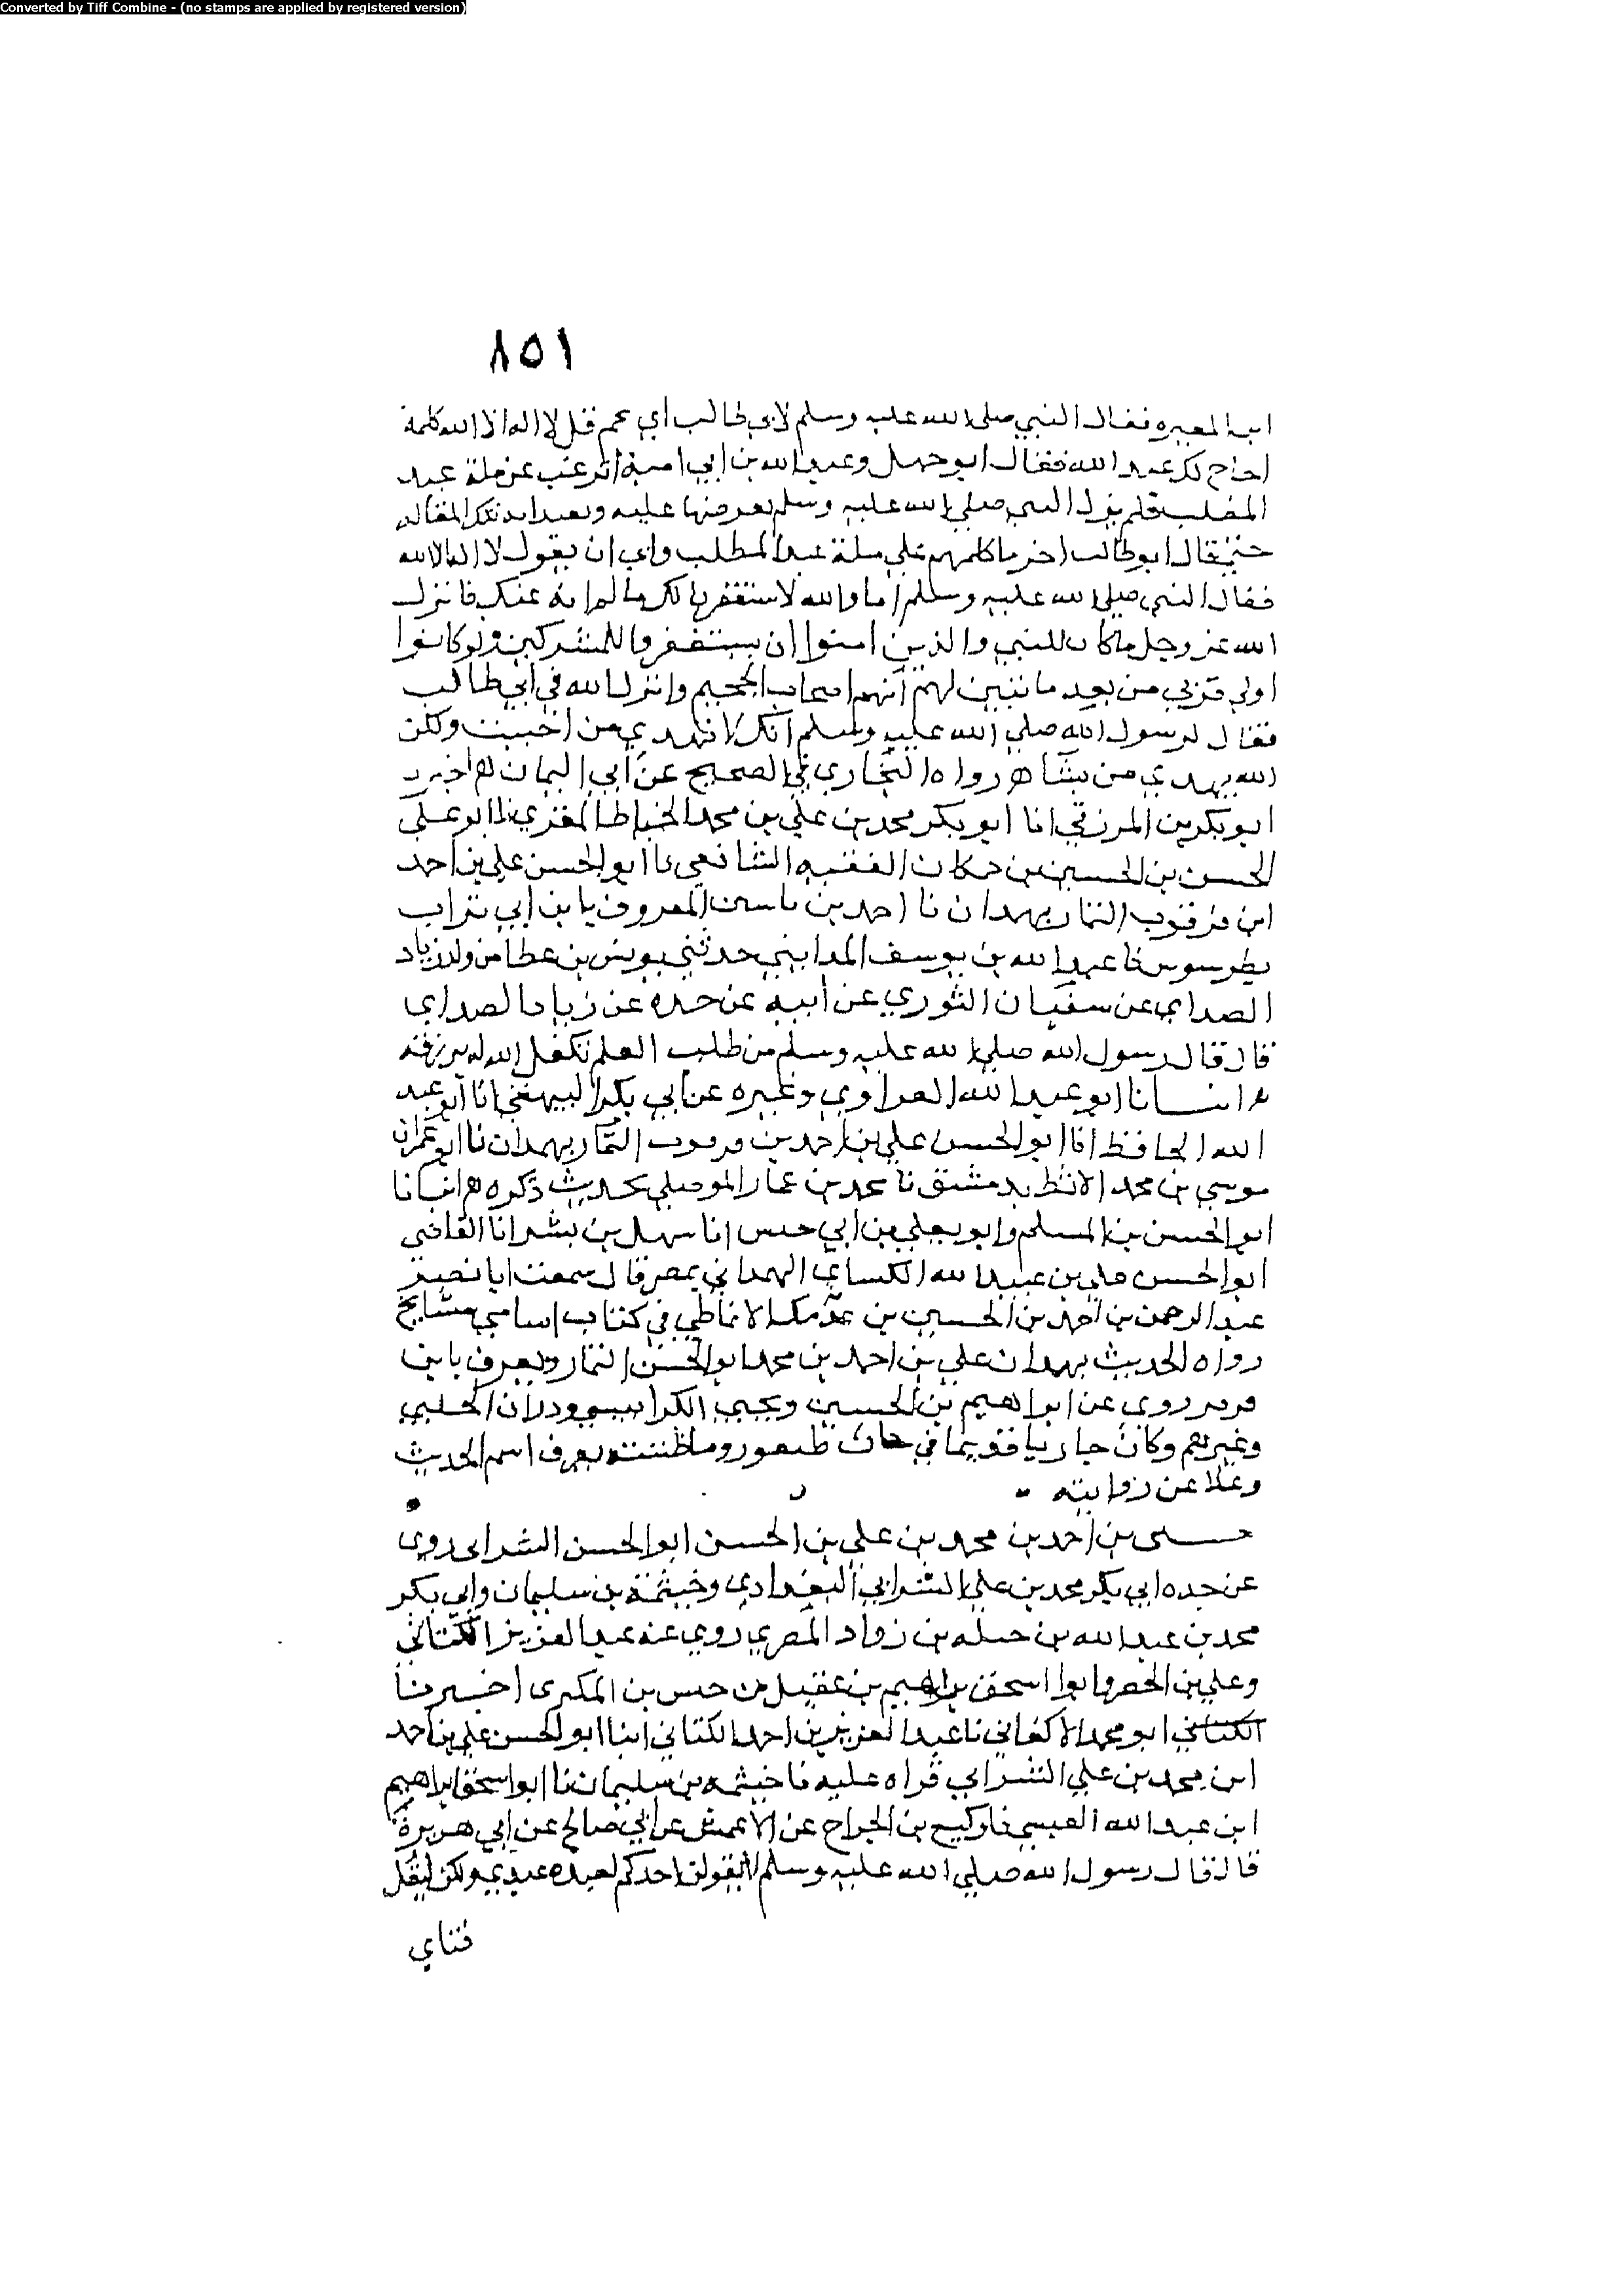 Converted by Tiff Combine - (no stamps are applied by registered version)
٨٥١
ابن المغيره فقال النبي صلى الله عليه وسلم لابي طالب أي عم قل لا اله الا الله كلمة
احاج لك عبد الله فقال ابو جهل وعبد الله بن ابي امية اترغب عن ملة عبد
المطلب فلم يزل النبي صلي الله عليه وسلم يعرضها عليه ويعيدا به بتلك المقاله
حتي قال ابو طالب اخر ما كلمهم علي ملة عبد المطلب وابي ان يقول لا اله الا الله
فقال النبي صلي الله عليه وسلم اما والله لاستغفرن لك ما لم انه عنك فانزل
الله عز وجل ما كان للنبي والذين امنوا ان يستغفروا للمشركين ولو كانوا
اولي قربي من بعد ما تبين لهم أنهم اصحاب الجحيم وانزل الله في ابي طالب
فقال لرسول الله صلي الله عليه وسلم انك لا تهدي من احببت ولكن
الله يهدي من يشا هـ رواه البخاري في الصحيح عن أبي اليمان هـ اخبرنا
ابو بكر بن المرزقي انا ابو بكر محمد بن علي بن محمد الخياط المقري انا ابو علي
الحسن بن الحسين بن حمكان الفقيه الشافعي نا ابو الحسن علي بن احمد
ابن قرقوب التمار بهمدان نا احمد بن ياسين المعروف بابن ابي تراب
بطرسوس نا عبد الله بن يوسف المدايني حدثني يونس بن عطا من ولد زياد
الصداي عن سفيان الثوري عن أبيه عن جده عن زياد الصداي
قال قال رسول الله صلي الله عليه وسلم من طلب العلم تكفل الله له برزقه
هـ انبانا ابو عبد الله الفراوي وغيره عن ابي بكر البيهقي انا أبو عبد
الله الحافظ انا ابو الحسن علي بن احمد بن قرقوب التمار بهمدان نا ابو عمران
موسي بن محمد بدمشق نا محمد بن عمار الموصلي بحديث ذكره هـ انبانا
ابو الحسن بن المسلم وابو يعلي بن ابي حبيش انا سهل بن بشر انا القاضي
ابو الحسن علي بن عبيد الله الكساي الهمداني بمصر قال سمعت ابا نصر
عبد الرحمن بن احمد بن الحسين بن الانماطي في كتاب اسامي مشايخ
رواه الحديث بهمدان علي بن احمد بن محمد ابو الحسن التمار ويعرف بابن
قرقر روي عن ابراهيم بن الحسين ويحيي الكرابيسي ودران الحلبي
وغيرهم وكان جارنا قديما في وما ظننته يعرف اسم الحديث
وعلا عن روايته
علي بن احمد بن محمد بن علي بن الحسن ابو الحسن الشرابي روي
عن جده ابي بكر محمد بن علي الشرابي البغدادي وخيثمة بن سليمان وابي بكر
محمد بن عبد الله بن جبله بن رواد المصري روي عنه عبد العزيز الكتاني
وعلي بن الخضر وابو اسحق ابراهيم بن عقيل بن حبش بن المكبري اخبرنا
ابو محمد الاكفاني نا عبد العزيز بن احمد الكتاني انبا ابو الحسن علي بن احمد
ابن محمد بن علي الشرابي قراه عليه نا خيثمه بن سليمان نا ابو اسحق ابراهيم
ابن عبد الله العبسي نا وكيع بن الجراح عن الاعمش عن ابي صالح عن ابي هريرة
قال قال رسول الله صلي الله عليه وسلم لا يقولن احدكم لعبده عبدي ولكن ليقل
فتاي